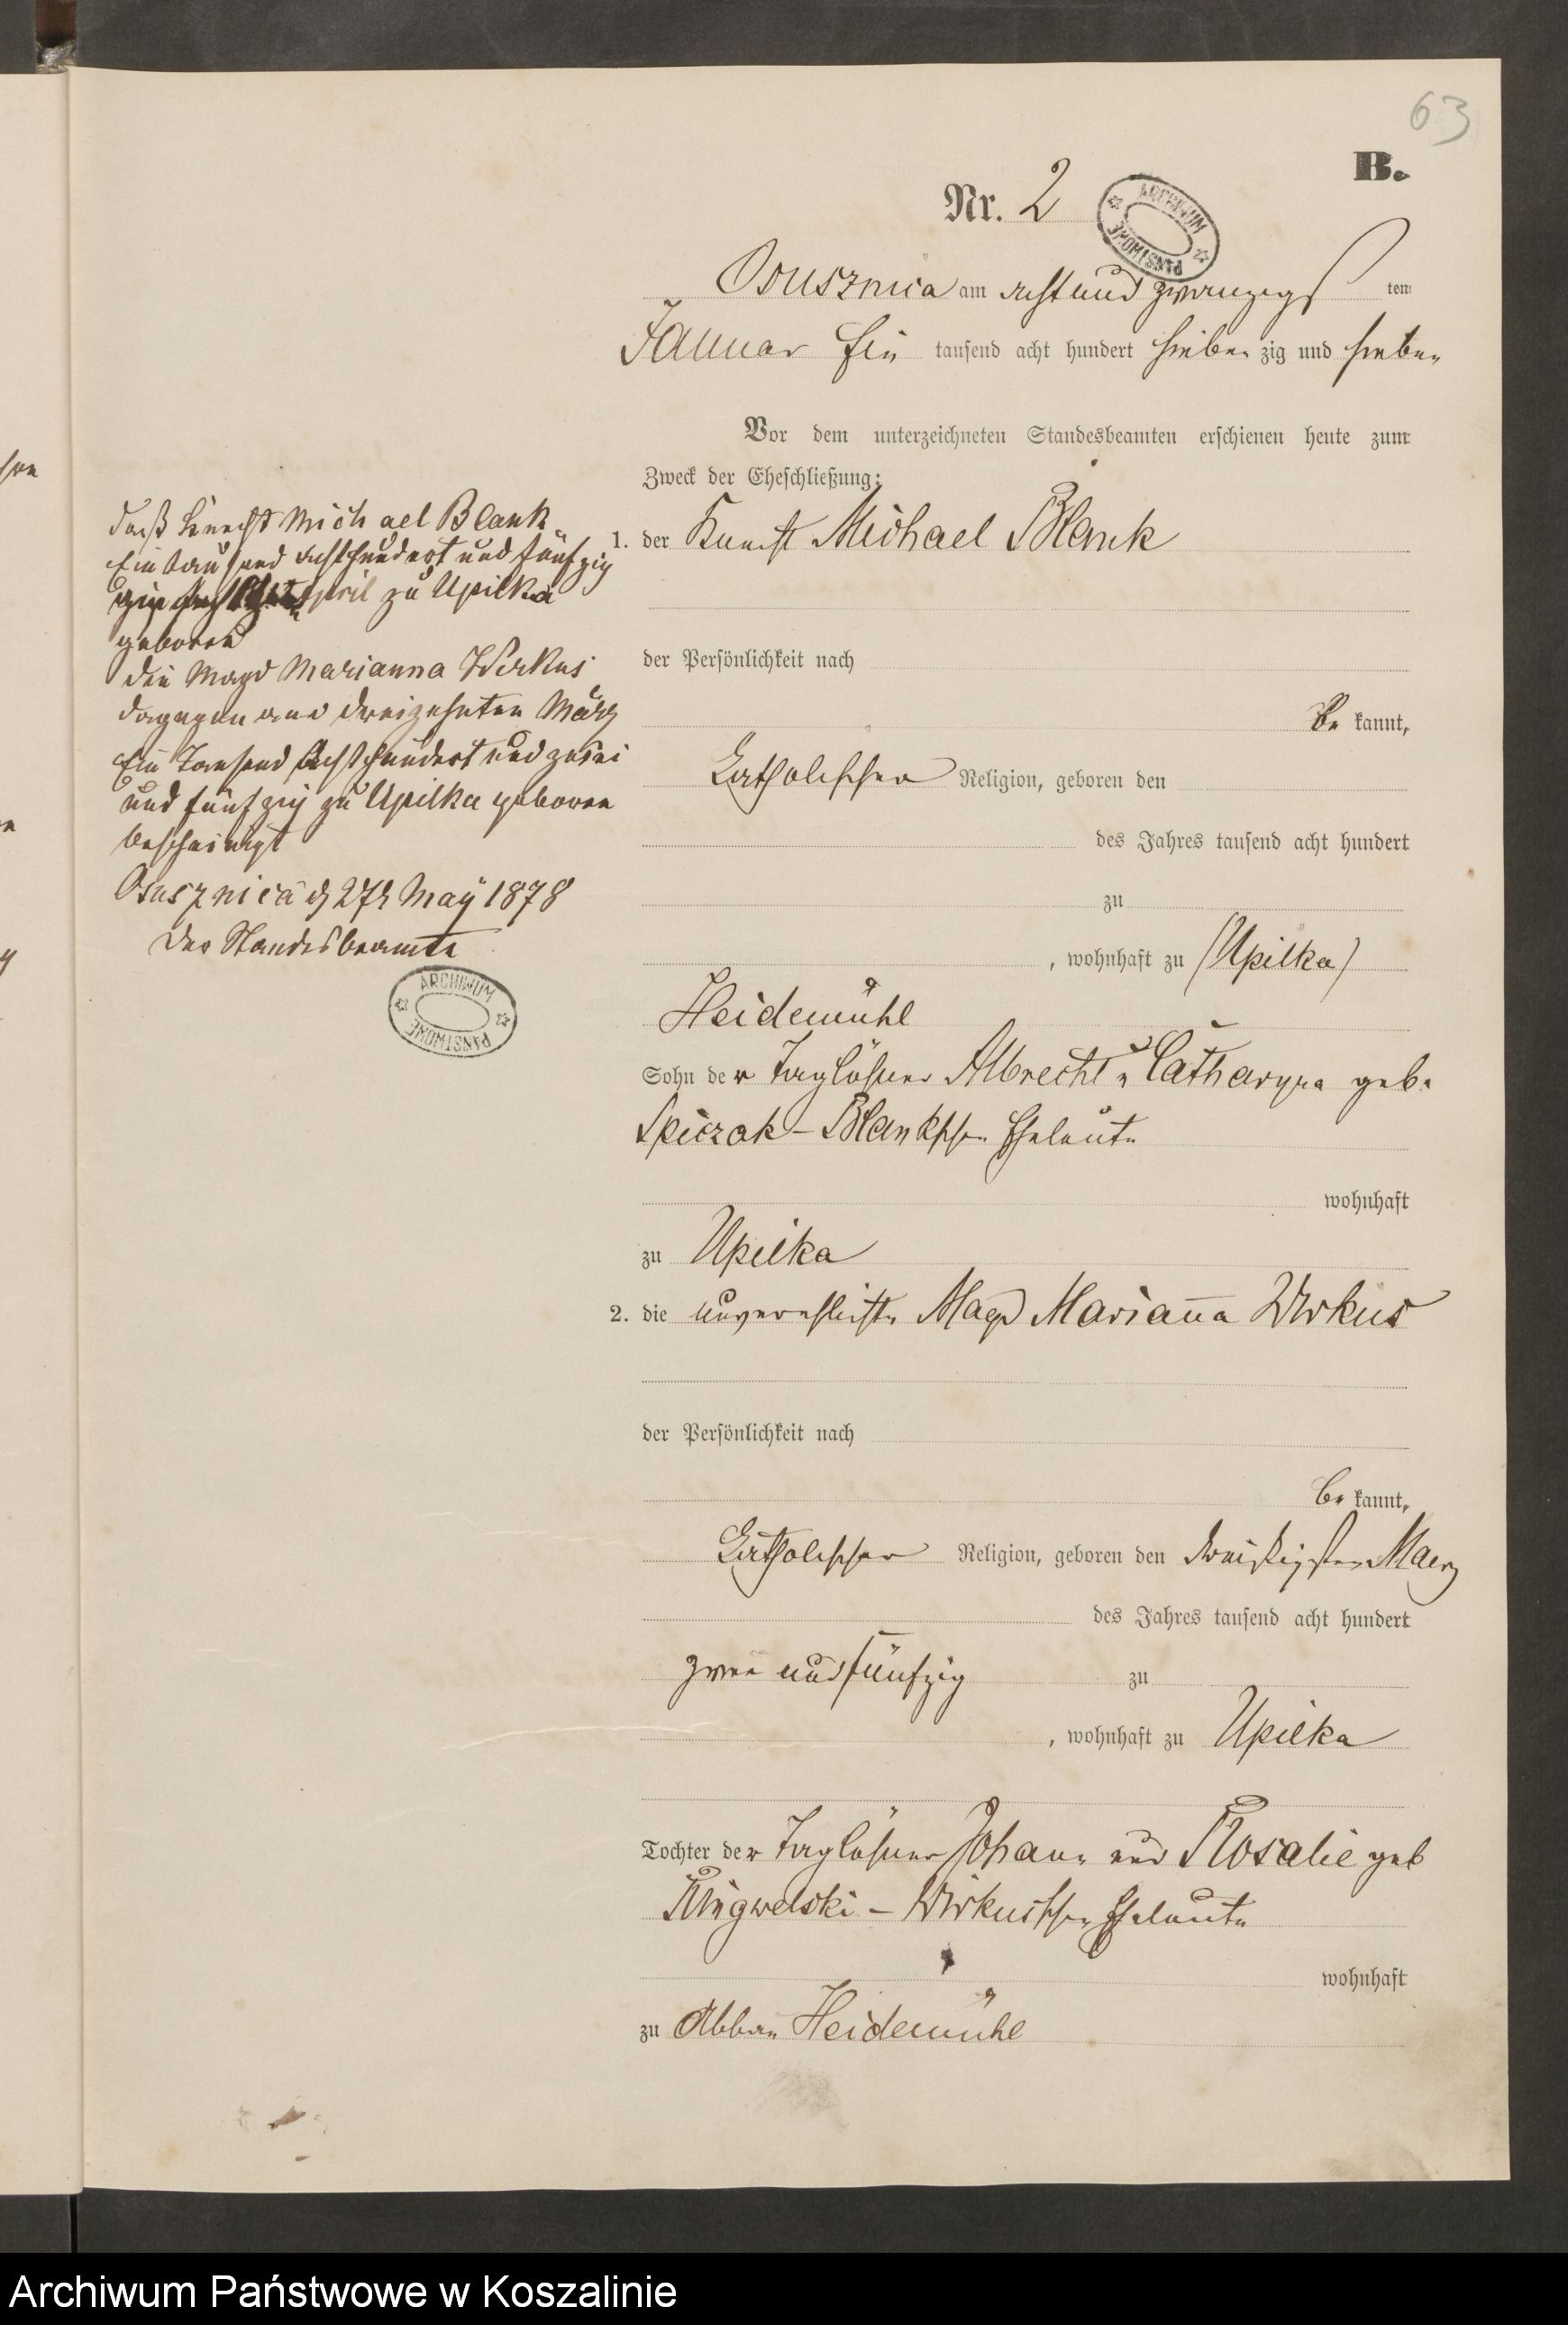 63
B.
Nr. 2
ARCHIWUM PAŃSTWOWE
Osusznica am acht und zwanzigs ten
Januar Ein tausend acht hundert sieben zig und sieben
Vor dem unterzeichneten Standesbeamten erschienen heute zum
Zweck der Eheschließung:
1. der Knecht Michael Blank
der Persönlichkeit nach
be kannt,
Catholischer Religion, geboren den
des Jahres tausend acht hundert
zu
, wohnhaft zu (Upilka)
Heidemühl
Sohn der Taglöhner Albrecht u Catharyna geb.
Spiczak-Blankschen Eheleute
wohnhaft
zu Upilka
2. die unverehlichte Magd Marianna Wirkus
der Persönlichkeit nach
be kannt,
Catholischer Religion, geboren den dreißigsten Maerz
des Jahres tausend acht hundert
zwei und fünfzig zu
, wohnhaft zu Upilka
Tochter der Taglöhner Johann und Rosalie geb
Ringwelski - Wirkusschen Eheleute
wohnhaft
zu Abbau Heidemühl
daß Knecht Michael Blank
Ein tausend achthundert und fünfzig
April zu Upilka
geboren
die Magd Marianna Wirkus
dagegen am dreizehnten März
Ein Tausend Achthundert und zwei
und fünfzig zu Upilka geboren
bescheinigt
Osusznica d 27t May 1878
Der Standesbeamte
ARCHIWUM PAŃSTWOWE
Archiwum Państwowe w Koszalinie